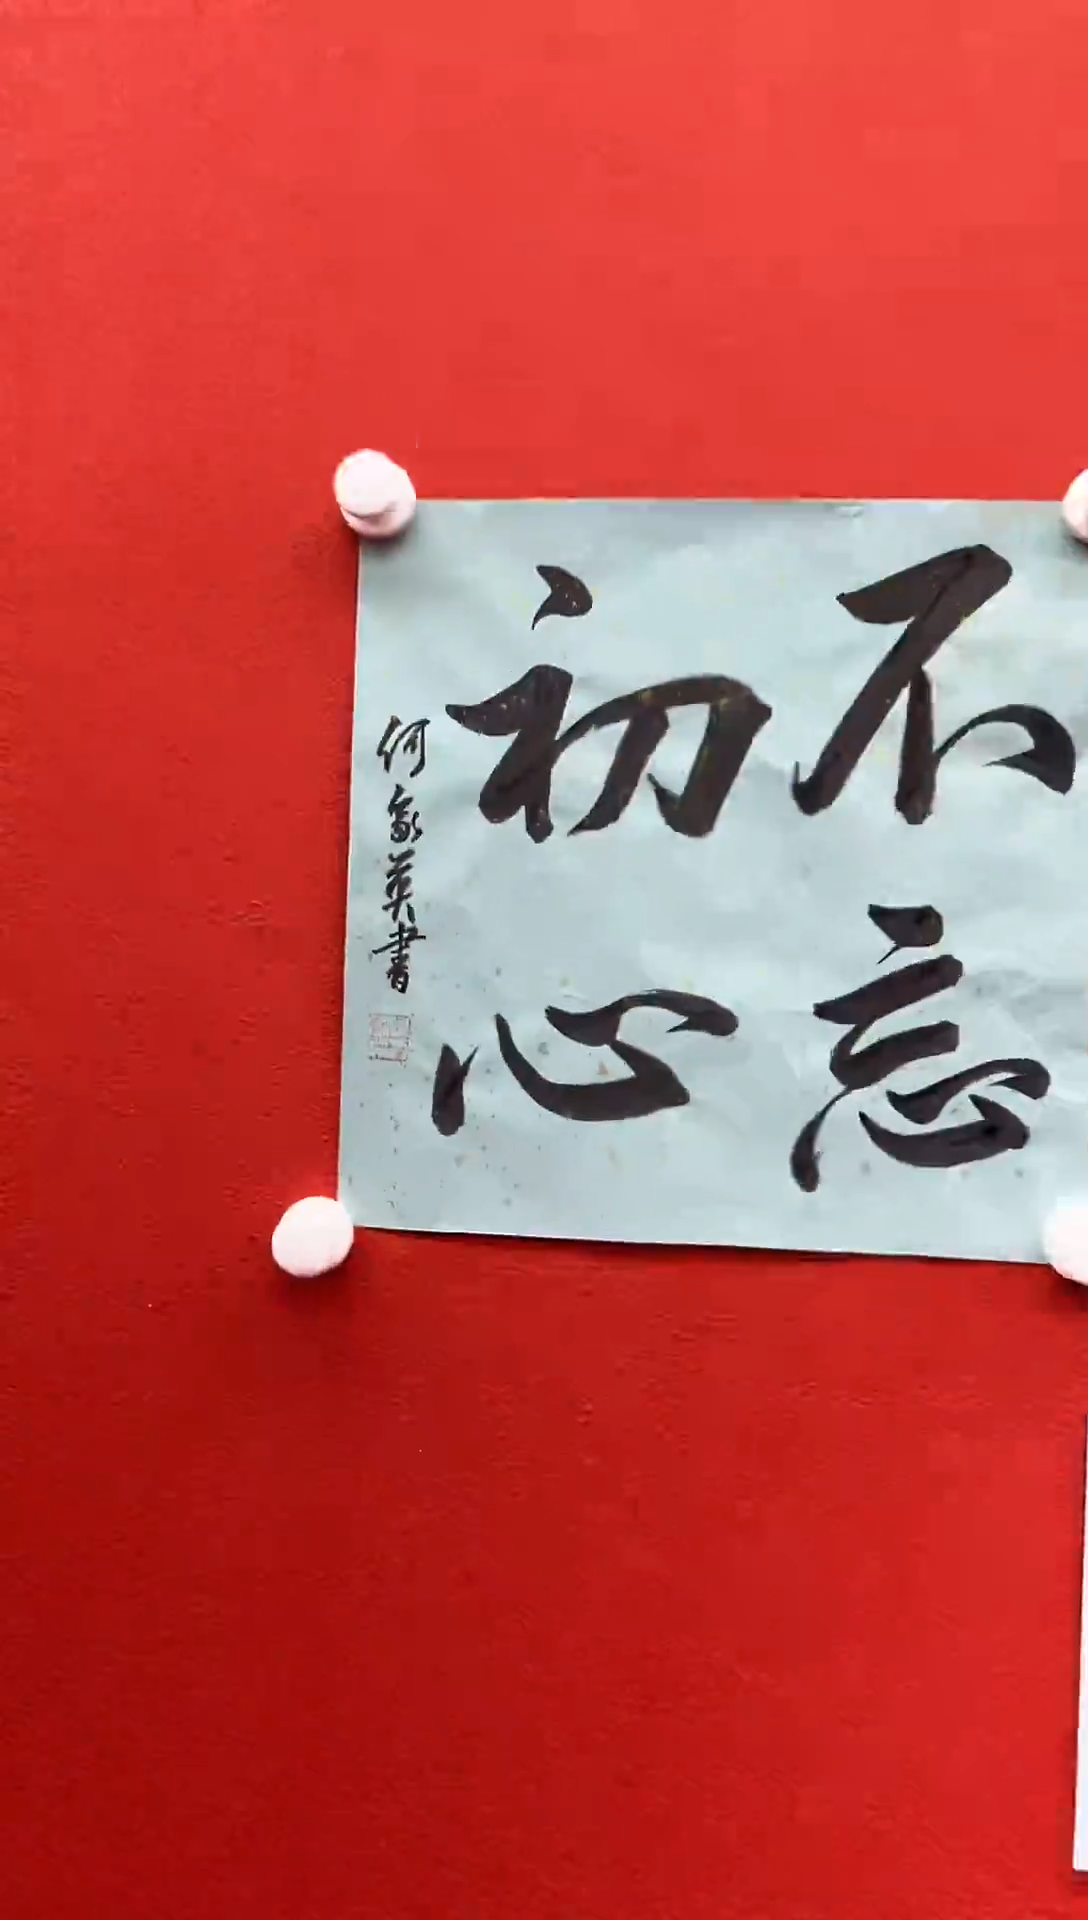 不忘
初心
何家英書